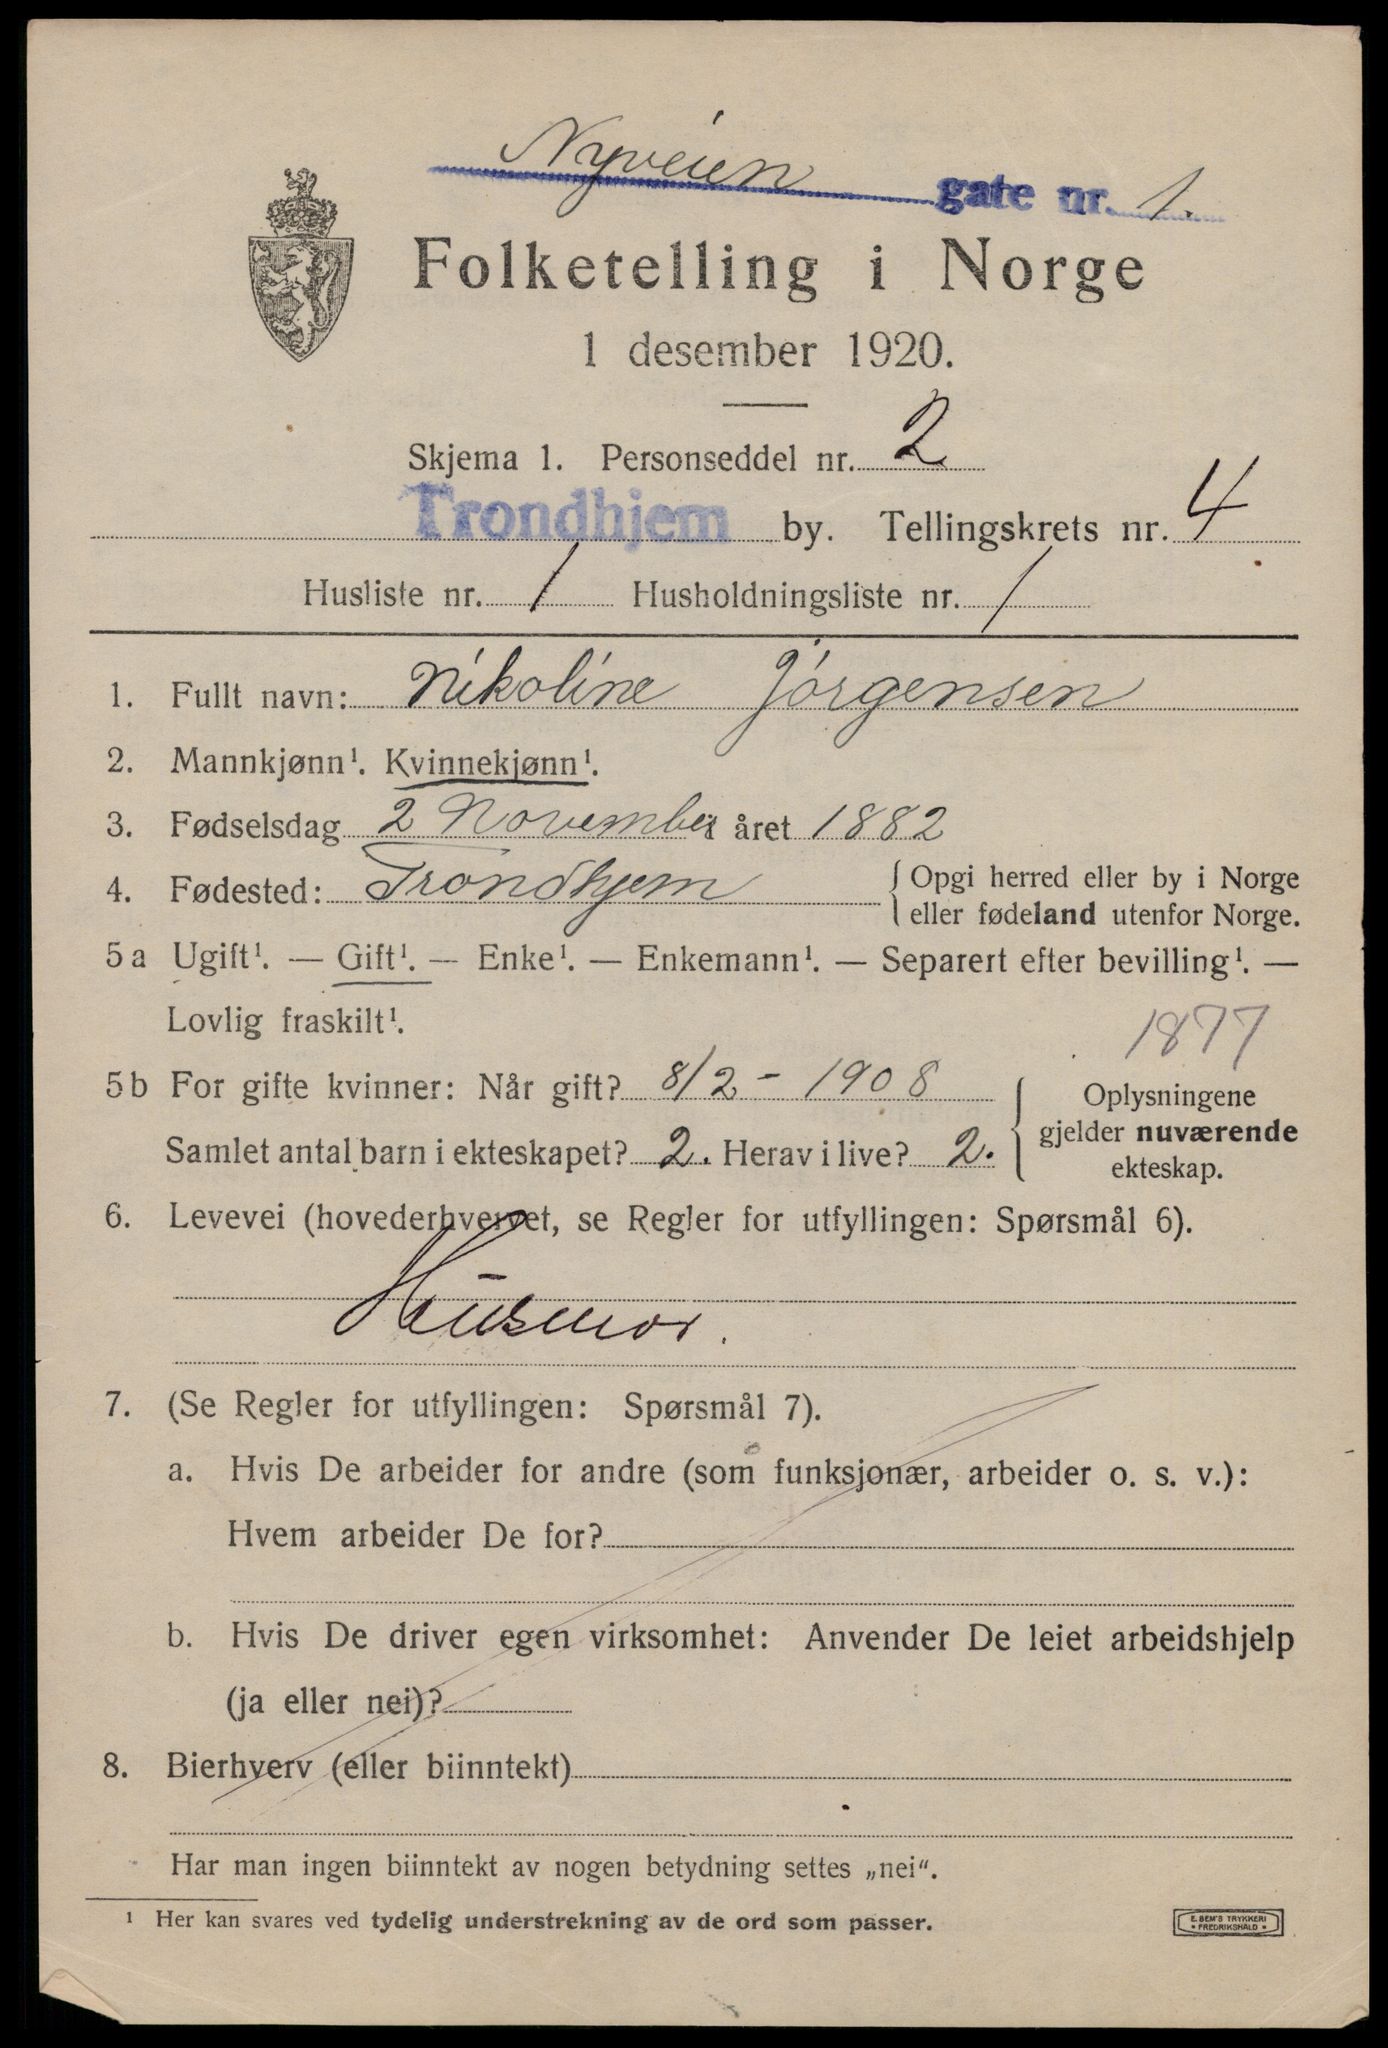 Nyveien gate nr. 1.
Folketelling i Norge
1 desember 1920.
Skjema 1. Personseddel nr. 2
Trondhjem by. Tellingskrets nr. 4
Husliste nr. 1 Husholdningsliste nr. 1
1. Fullt navn: Nikoline Jórgensen
2. Mannkjønn¹. Kvinnekjønn¹.
3. Fødselsdag 2 November året 1882
4. Fødested: Trondhjem { Opgi herred eller by i Norge
eller fødeland utenfor Norge.
5 a Ugift¹. — Gift¹. — Enke¹. — Enkemann¹. — Separert efter bevilling¹. —
Lovlig fraskilt¹.
1877
5 b For gifte kvinner: Når gift? 8/2 - 1908
Samlet antal barn i ekteskapet? 2. Herav i live? 2.
{ Oplysningene
gjelder nuværende
ekteskap.
6. Levevei (hovederhvervet, se Regler for utfyllingen: Spørsmål 6).
Husmor.
7. (Se Regler for utfyllingen: Spørsmål 7).
a. Hvis De arbeider for andre (som funksjonær, arbeider o. s. v.):
Hvem arbeider De for?
b. Hvis De driver egen virksomhet: Anvender De leiet arbeidshjelp
(ja eller nei)?
8. Bierhverv (eller biinntekt)
Har man ingen biinntekt av nogen betydning settes „nei“.
¹ Her kan svares ved tydelig understrekning av de ord som passer.
E. SEM'S TRYKKERI
• FREDRIKSHALD •